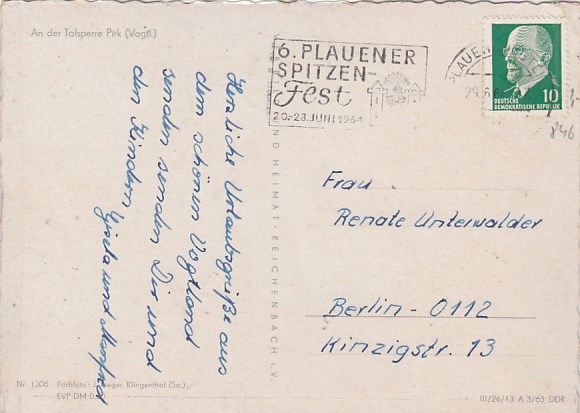 An der Talsperre Pirk (Vogtl.)
6. PLAUENER
SPITZEN-
Fest
20.-28. JUNI 1964
PLAUEN
29.6.64
10
DEUTSCHE
DEMOKRATISCHE REPUBLIK
846
Herzliche Urlaubsgrüße aus
dem schönen Vogtland
senden senden Dir und
den Kindern
Gisela und Manfred
UND HEIMAT · REICHENBACH i. V.
Frau
Renate Unterwalder
Berlin - 0112
Kinzigstr. 13
Nr. 1306 Farbfoto: Klingenthal (Sa.)
EVP DM
III/26/13 A 3/63 DDR